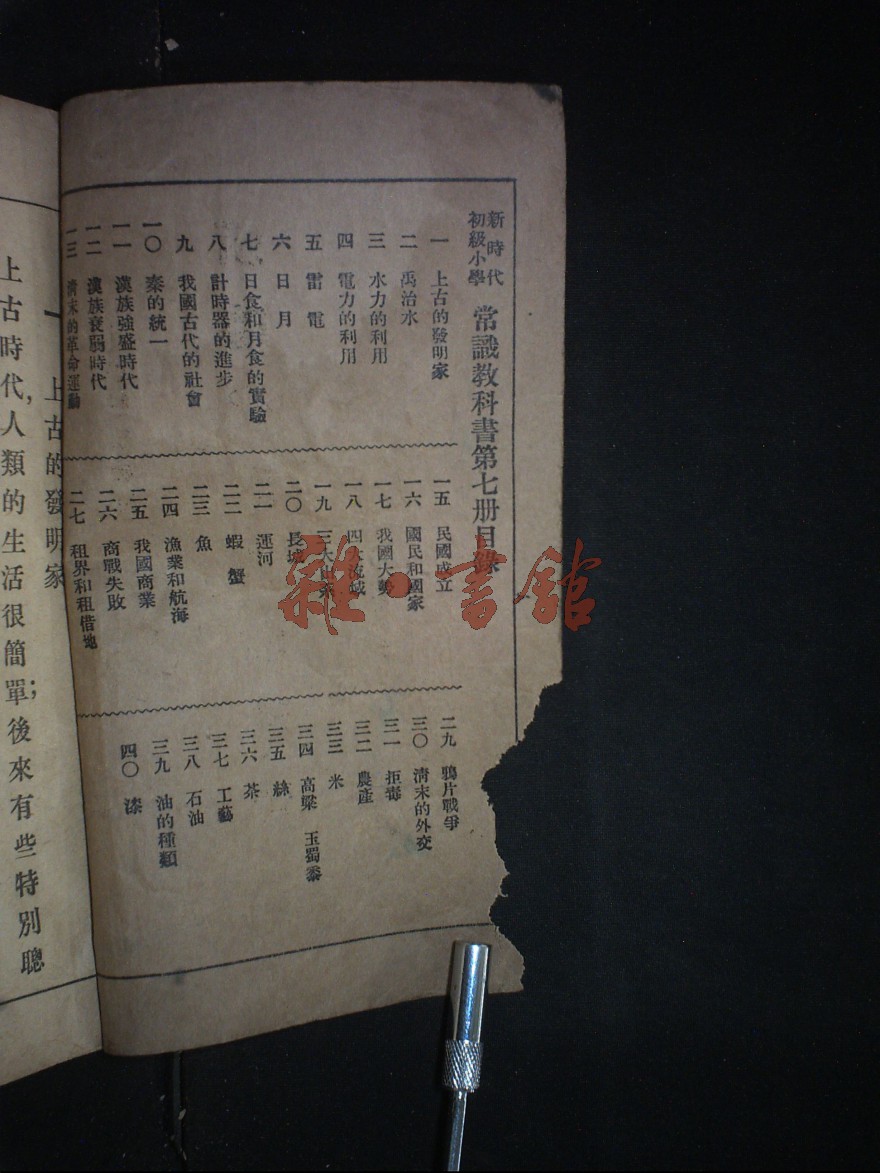 新時代
初級小學
常識教科書第七册目錄
一 上古的發明家
二 禹治水
三 水力的利用
四 電力的利用
五 雷電
六 日月
七 日食和月食的實驗
八 計時器的進步
九 我國古代的社會
一〇 秦的統一
一一 漢族強盛時代
一二 漢族衰弱時代
一三 清末的革命運動
一五 民國成立
一六 國民和國家
一七 我國大勢
一八 四大流域
一九 三大
二〇 長城
二一 運河
二二 蝦蟹
二三 魚
二四 漁業和航海
二五 我國商業
二六 商戰失敗
二七 租界和租借地
二九 鴉片戰爭
三〇 清末的外交
三一 拒毒
三二 農產
三三 米
三四 高粱 玉蜀黍
三五 絲
三六 茶
三七 工藝
三八 石油
三九 油的種類
四〇 漆
一 上古的發明家
上古時代,人類的生活很簡單;後來有些特別聰
雜·書館